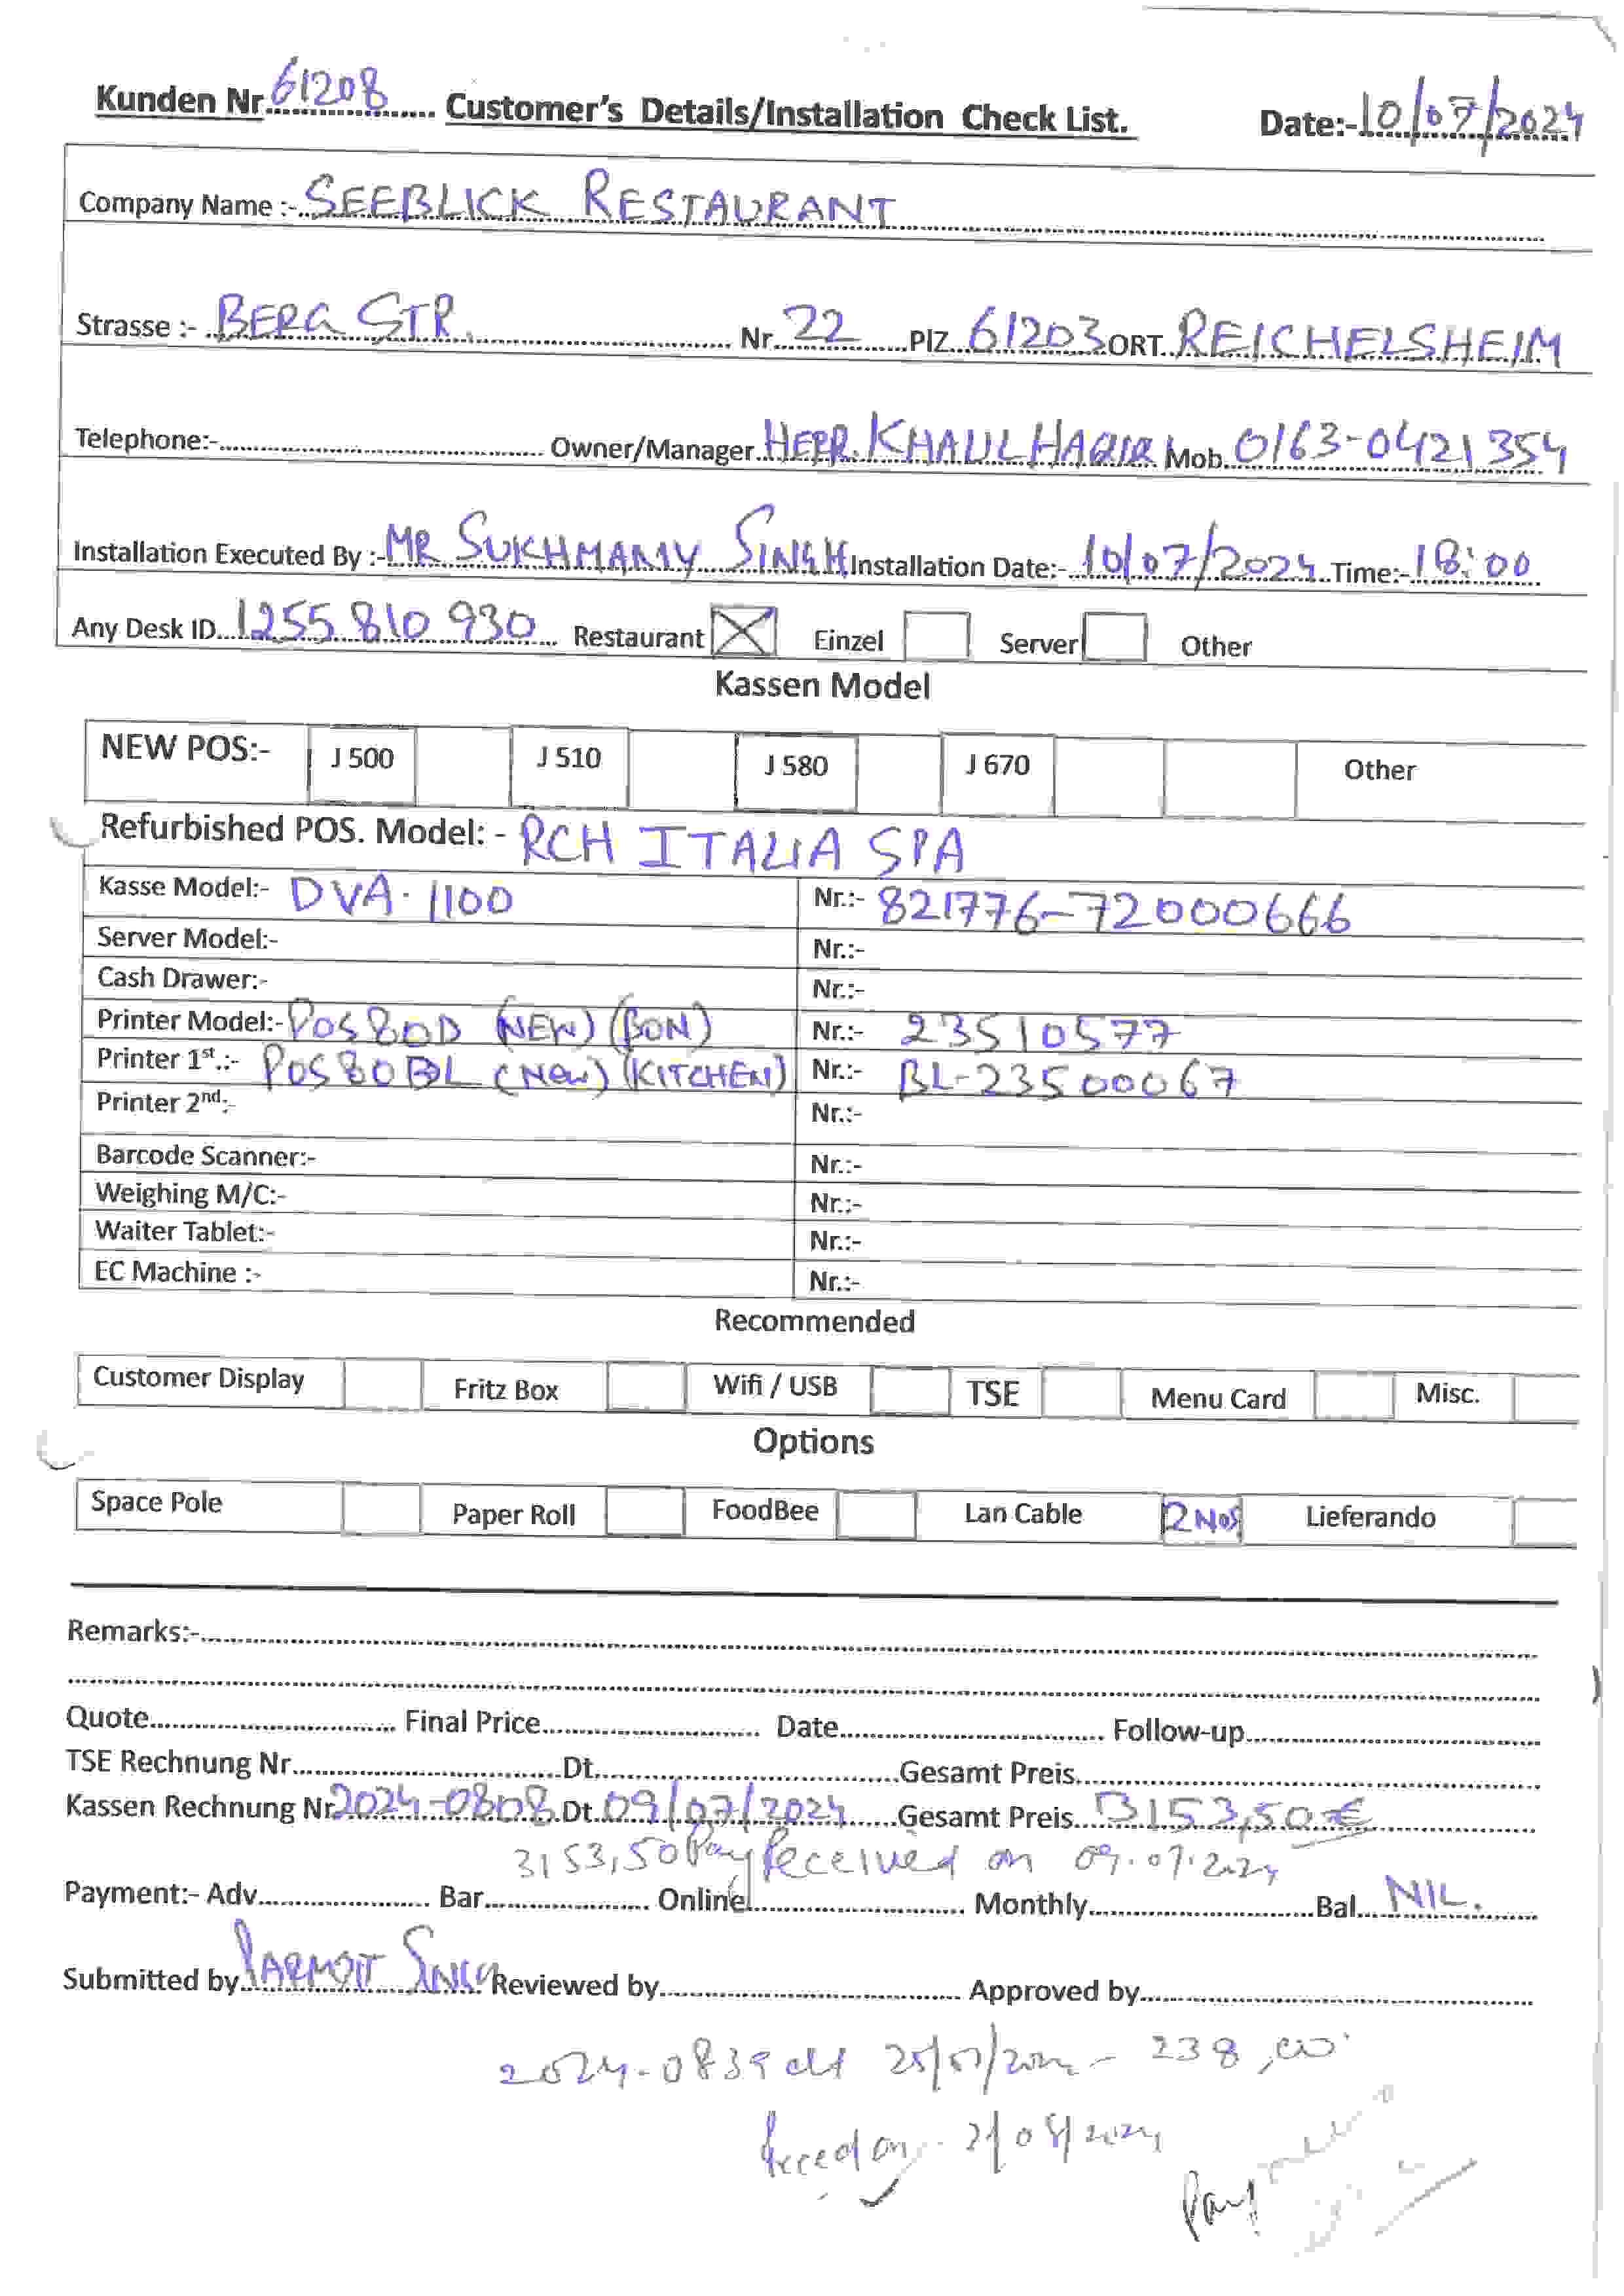 Kunden Nr 61208 Customer's Details/Installation Check List. Date:-10/07/2024
Company Name :- SEEBLICK RESTAURANT
Strasse :- BERG STR. Nr. 22 PlZ 61203 ORT REICHELSHEIM
Telephone:- Owner/Manager HERR. KHAUL HAQIQ Mob. 0163-0421354
Installation Executed By :- MR SUKHMANY SINGH Installation Date:- 10/07/2024 Time:- 18:00
Any Desk ID 1255 810 930 Restaurant Einzel Server Other
Kassen Model
NEW POS:- J 500 J 510 J 580 J 670 Other
Refurbished POS. Model: - RCH ITALIA SPA
Kasse Model:- DVA-1100 Nr.:- 821776-72000666
Server Model:- Nr.:-
Cash Drawer:- Nr.:-
Printer Model:- POS80D (NEW) (BON) Nr.:- 23510577
Printer 1st.:- POS80BL (NEW) (KITCHEN) Nr.:- BL-23500067
Printer 2nd:- Nr.:-
Barcode Scanner:- Nr.:-
Weighing M/C:- Nr.:-
Waiter Tablet:- Nr.:-
EC Machine :- Nr.:-
Recommended
Customer Display Fritz Box Wifi / USB TSE Menu Card Misc.
Options
Space Pole Paper Roll FoodBee Lan Cable 2 NOS Lieferando
Remarks:-
Quote Final Price Date Follow-up
TSE Rechnung Nr Dt. Gesamt Preis
Kassen Rechnung Nr 2024-0808 Dt. 09/07/2024 Gesamt Preis 3153,50€
3153,50 Pay Received on 09.07.2024
Payment:- Adv Bar Online Monthly Bal. NIL.
Submitted by PARMJIT SINGH Reviewed by Approved by
2024-0839 dt - 238,00
on 2/08/2024